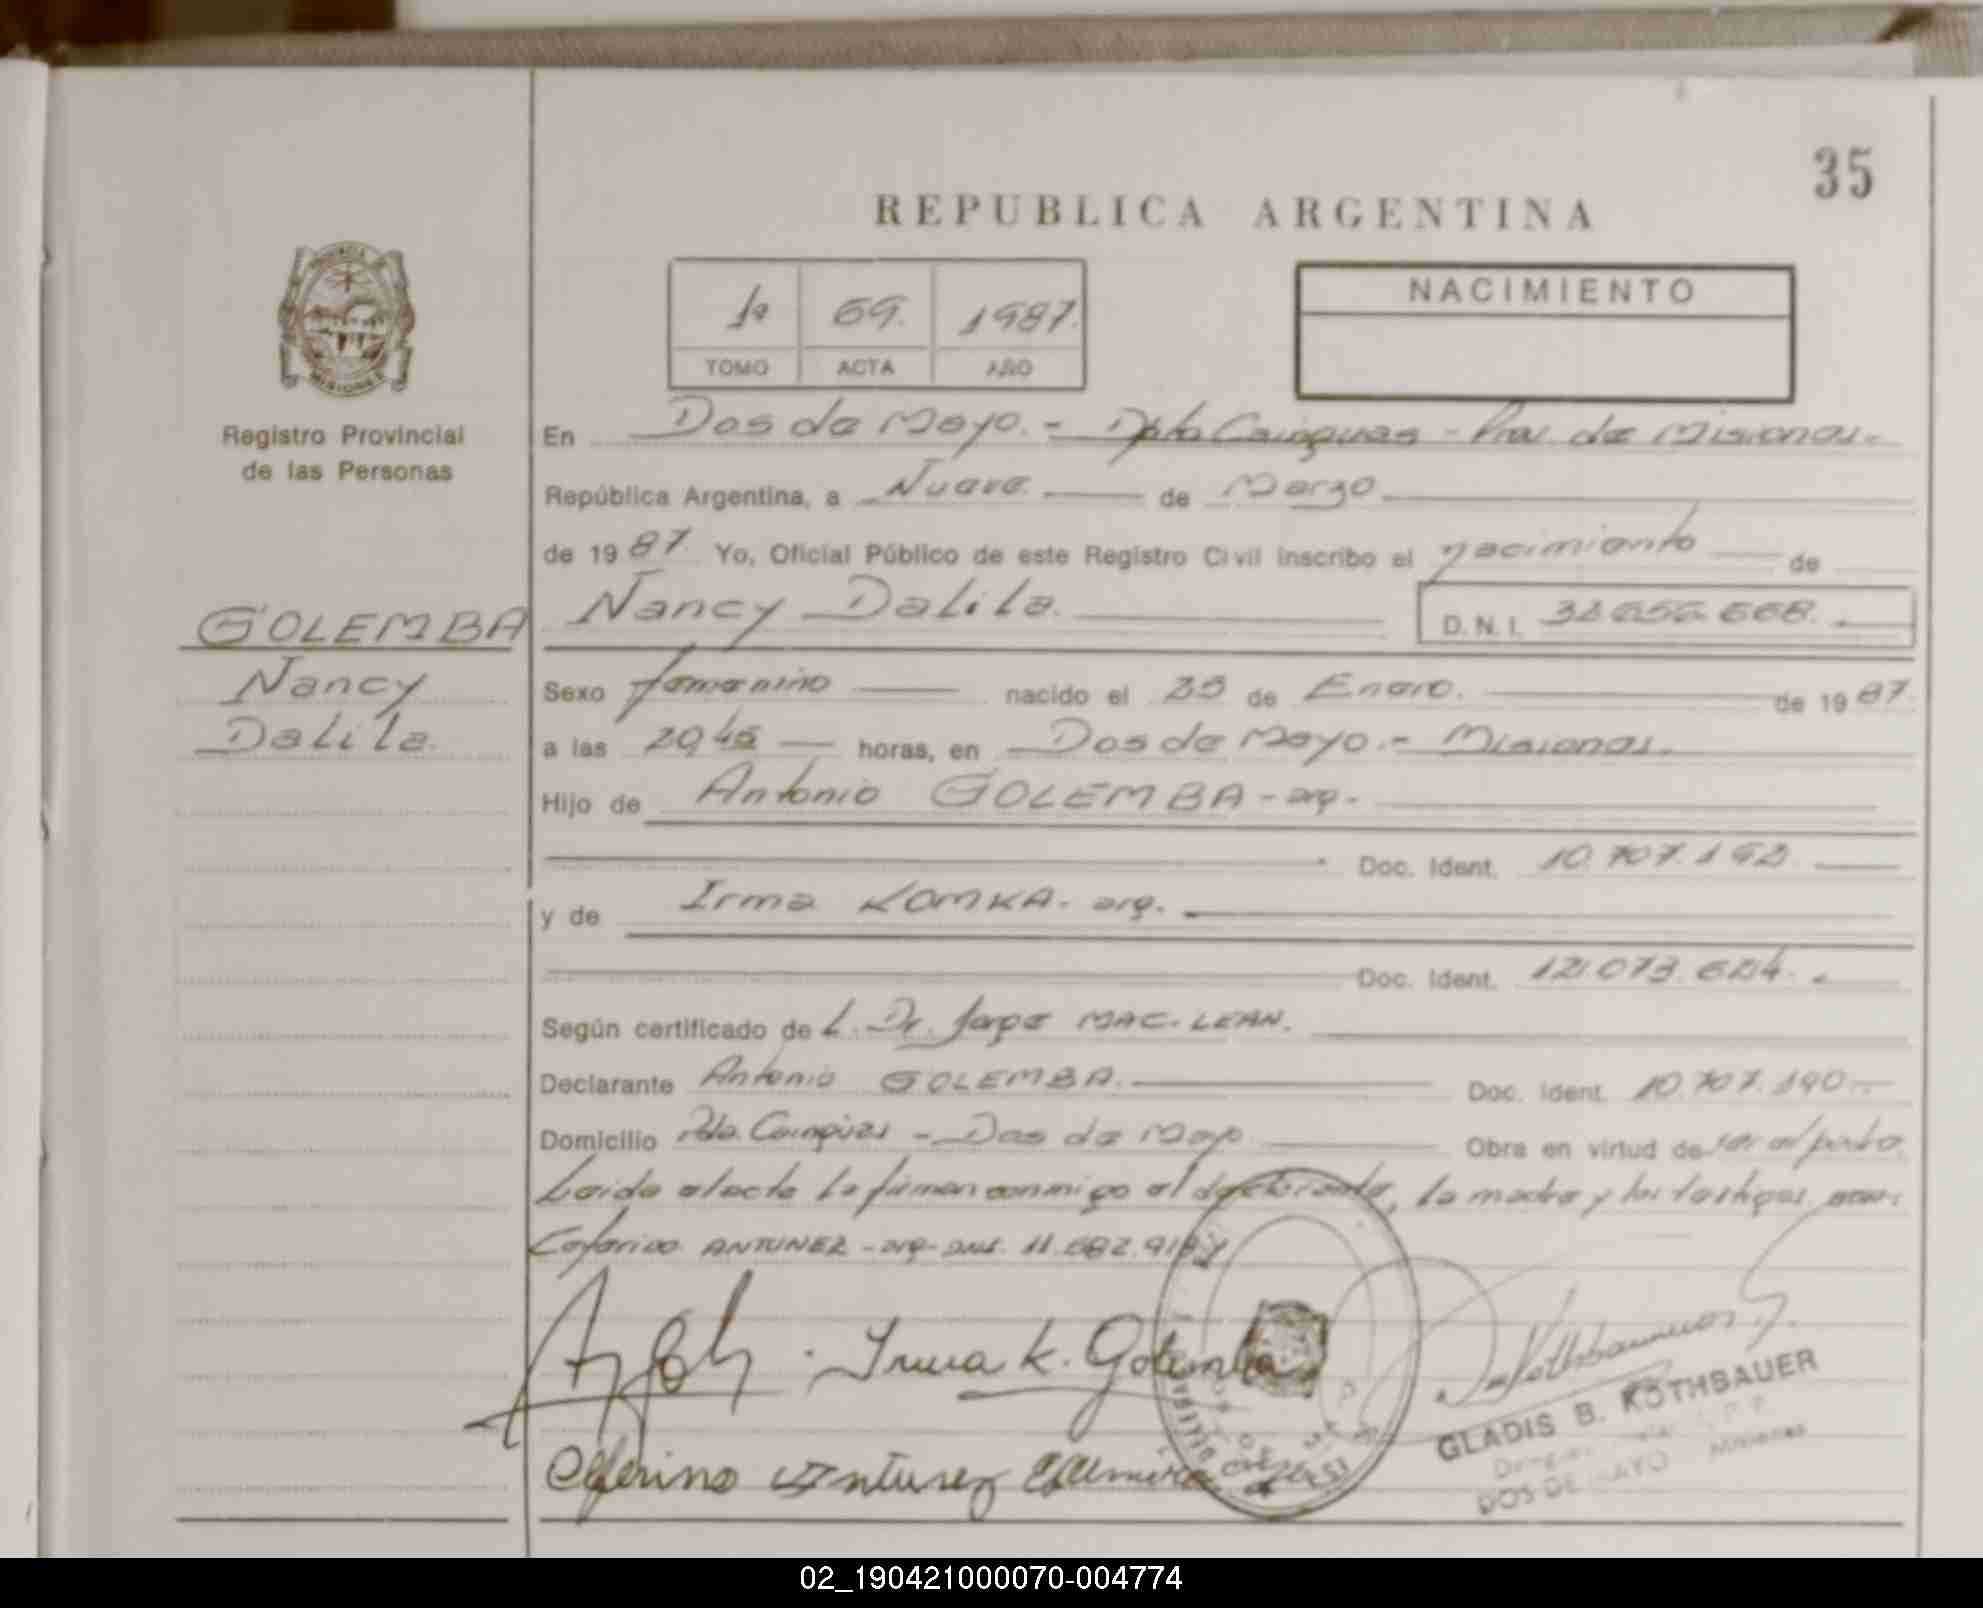 35
REPUBLICA ARGENTINA
1º 69. 1987.
TOMO ACTA AÑO
NACIMIENTO
PROVINCIA DE
MISIONES
Registro Provincial
de las Personas
En Dos de Mayo.- Dpto Cainguas - Prov. de Misiones.-
República Argentina, a Nueve de Marzo
de 1987. Yo, Oficial Público de este Registro Civil inscribo el nacimiento de
GOLEMBA
Nancy
Dalila.
Nancy Dalila.
D.N.I.
Sexo femenino nacido el de Enero. de 1987.
a las horas, en Dos de Mayo.- Misiones.
Hijo de Antonio GOLEMBA - arg.-
Doc. Ident. 10.707.192
y de Irma KOMKA - arg.
Doc. Ident. 12.073.624.
Según certificado de L. Dr. Jorge MAC. LEAN.
Declarante Antonio GOLEMBA. Doc. Ident. 10.707.190.-
Domicilio Pdo. Cainguas - Dos de Mayo Obra en virtud de ser el padre.
Leida el acta la firman conmigo el declarante, la madre y los testigos
Ceferino ANTUNEZ - arg- DNI. 11.682.918
Irma K. Golemba
Ceferino Antunez
GLADIS B. ROTHBAUER
DOS DE MAYO Misiones
02_190421000070-004774